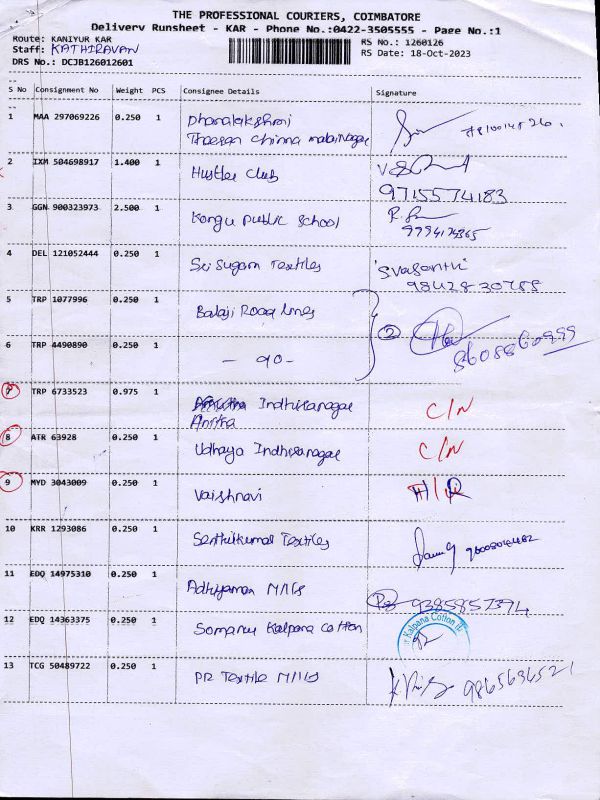 THE PROFESSIONAL COURIERS, COIMBATORE
Delivery Runsheet - KAR - Phone No.:0422-3505555 - Page No.:1
Route: KANIYUR KAR
RS No.: 1260126
Staff: KATHIRAVAN
RS Date: 18-Oct-2023
DRS No.: DCJB126012601
S No Consignment No Weight PCS Consignee Details Signature
1 MAA 297069226 0.250 1 Dhanalakshmi
2 IXM 504698917 1.400 1 Hustler Club
9715574183
3 GGN 900323973 2.500 1 Kongu Public School
4 DEL 121052444 0.250 1 Sri Sugam Textiles 'Svasanthi'
5 TRP 1077996 0.250 1 Balaji Road lines
6 TRP 4490890 0.250 1 2
7 TRP 6733523 0.975 1 Indhiranagar C/N
8 ATR 63928 0.250 1 Udhaya Indhiranagar C/N
9 MYD 3043009 0.250 1 Vaishnavi
10 KRR 1293086 0.250 1 Senthilkumar Textiles
11 EDQ 14975310 0.250 1 Adhiyaman Mills 9385857394
12 EDQ 14363375 0.250 1 Somanu Kalpana Cotton Kalpana Cotton
13 TCG 50489722 0.250 1 PR Textile Mills